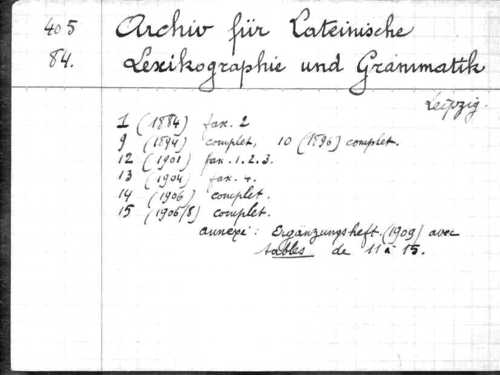 405 Archiv für Lateinische
84. Lexikographie und Grammatik
Leipzig.
1 (1884) fax. 2
9 (1894) complet, 10 (1896) complet.
12 (1901) fax. 1.2.3.
13 (1904) fax. 4.
14 (1906) complet.
15 (1906/8) complet.
annexe: Ergänzungsheft (1909) avec
tables de 11 à 15.